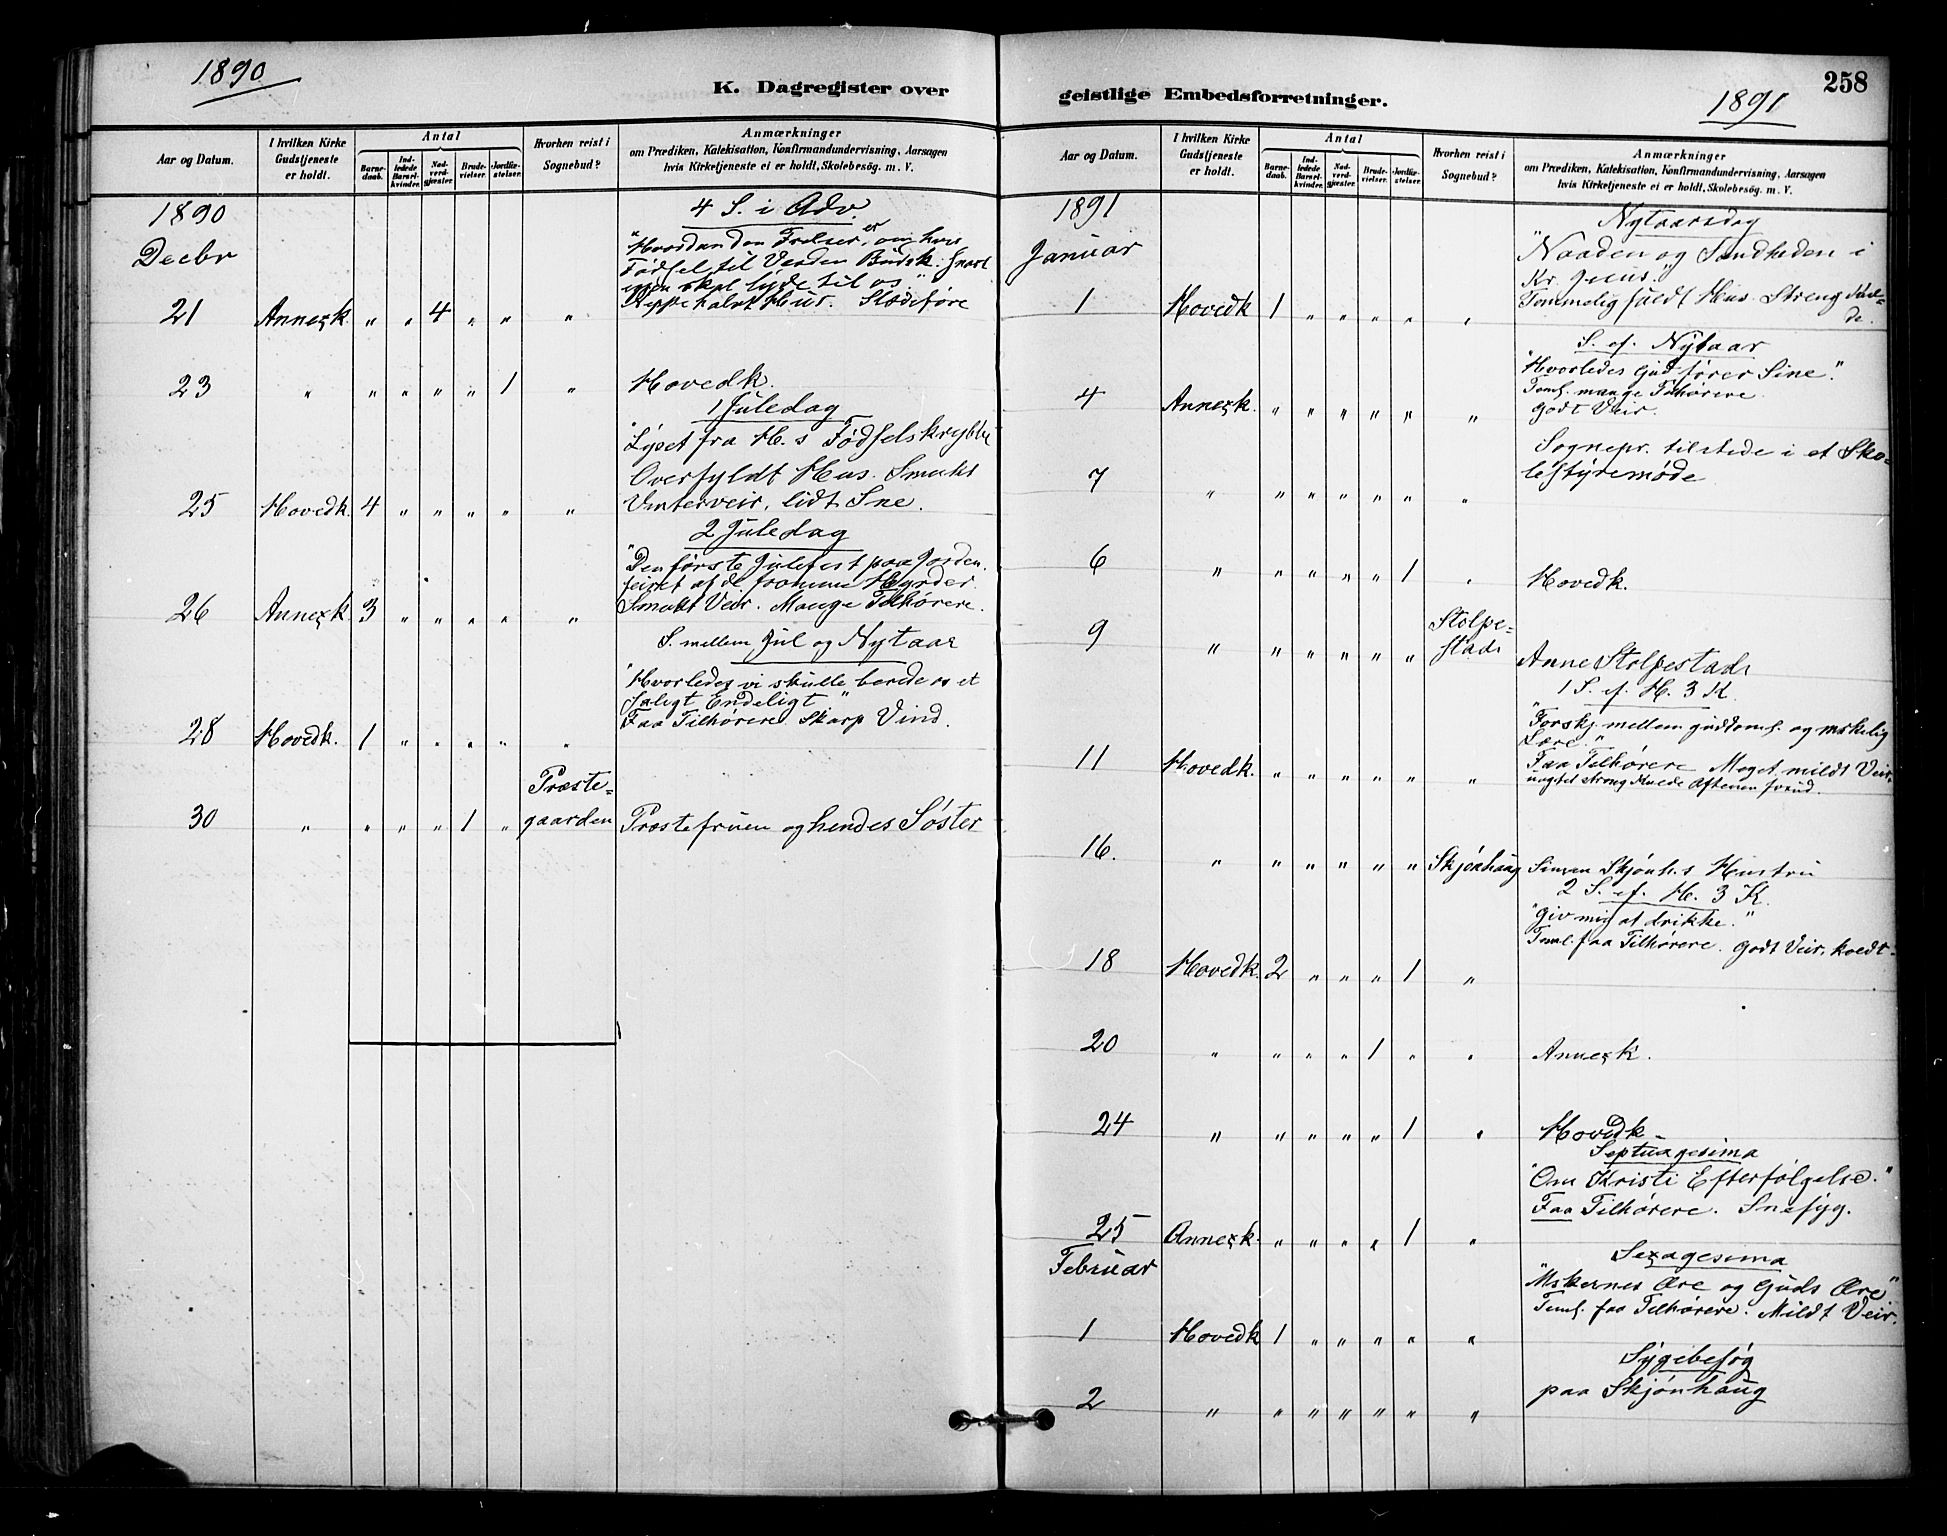 1890
K. Dagregister over
Aar og Datum.
I hvilken Kirke Gudstjeneste er holdt.
Antal
Barnedaab.
Indledede Barselkvinder.
Nadverdgjæster.
Brudevielser.
Jordfæstelser.
Hvorhen reist i Sognebud?
Anmærkninger
om Prædiken, Katekisation, Konfirmandundervisning, Aarsagen
hvis Kirketjeneste ei er holdt, Skolebesøg. m. V.
1890
Decbr
4 S. i Adv.
"Hvordan den Frelser er, om hvis
Fødsel til Verden Budsk. snart
igjen skal lyde til os"
21 Annexk. " " 4 " " " Neppe halvt Hus. Slædeføre
23 " " " " " 1 " Hovedk.
1 Juledag
"Lyset fra H.s Fødselskrybbe
Overfyldt Hus. Smukt
25 Hovedk. 4 " " " " " Vinterveir, lidt Sne.
2 Juledag
"Den første Julefest paa Jorden,
feiret af de fromme Hyrder
26 Annexk 3 " " " " " Smukt Veir. Mange Tilhørere.
S. mellem Jul og Nytaar
"Hvorledes vi skulle berede os et
saligt Endeligt"
28 Hovedk. 1 " " " " " Faa Tilhørere. Skarp Vind.
Præste=
30 " " " " 1 " gaarden Præstefruen og hendes Søster
geistlige Embedsforretninger.
258
1891
Aar og Datum.
I hvilken Kirke Gudstjeneste er holdt.
Antal
Barnedaab.
Indledede Barselkvinder.
Nadverdgjæster.
Brudevielser.
Jordfæstelser.
Hvorhen reist i Sognebud?
Anmærkninger
om Prædiken, Katekisation, Konfirmandundervisning, Aarsagen
hvis Kirketjeneste ei er holdt, Skolebesøg. m. V.
1891
Januar
Nytaarsdag
"Naaden og Sandheden i
Kr. Jesus."
1 Hovedk 1 " " " " " Temmelig fuldt Hus. Streng Kul=
de.
S. ef. Nytaar
"Hvorledes Gud fører Sine."
Teml. mange Tilhørere.
4 Annexk. " " " " " " Godt Veir.
Sognepr. tilstede i et Sko=
7 " " " " " " " lestyremøde
6 " " " " " 1 " Hovedk.
Stolpe=
9 " " " " " " stad Anne Stolpestad
1 S. ef. H. 3 K.
"Forskj. mellem guddoml. og mskelig
Lære."
11 Hovedk. " " " " " " Faa Tilhørere Meget mildt Veir,
uagtet streng Kulde Aftenen forud.
16. " " " " " " Skjønhaug Simen Skjønh.s Hustru
2 S. ef. H. 3 K.
"Giv mig at drikke."
Teml. faa Tilhørere. Godt Veir, koldt.
18 Hovedk. 2 " " " 1 "
20 " " " " 1 " " Annexk.
24 " " " " " 1 " Hovedk.
Septuagesima
"Om Kristi Efterfølgelse."
Faa Tilhørere. Snefyg.
25 Annexk. " " " " 1 "
Februar
Sexagesima
"Mskernes Ære og Guds Ære"
Teml. faa Tilhørere. Mildt Veir.
1 Hovedk 1 " " " " "
Sygebesøg
2 " " " " " " " paa Skjønhaug